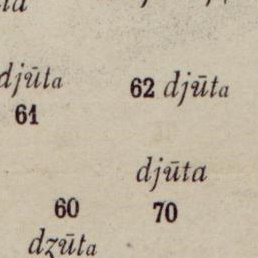 djūta 62 djūta
61
djūta
60 70
dzūta